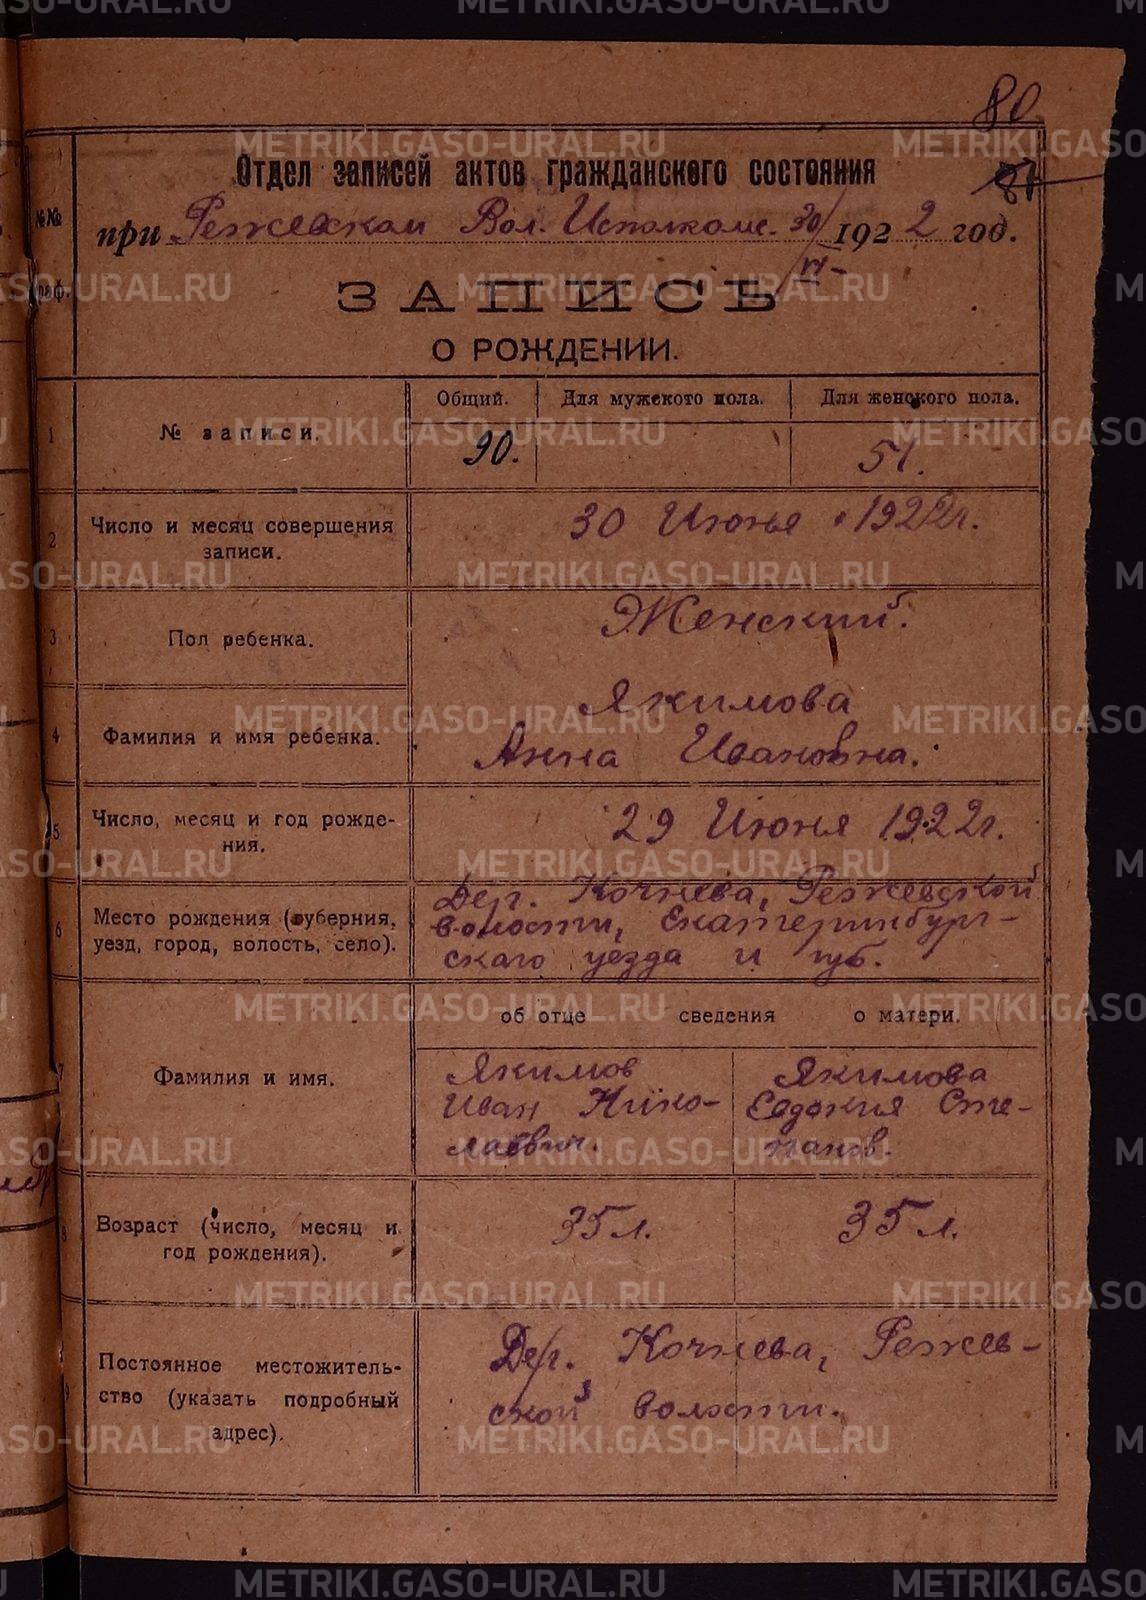 80
Отдел записей актов гражданского состояния
81
№№
граф.
при Режевском Вол. Исполкоме. 30/VI- 1922 год.
ЗАПИСЬ
О РОЖДЕНИИ.
1
№ записи.
Общий. Для мужского пола. Для женского пола.
90. 51.
2
Число и месяц совершения
записи.
30 Июня 1922г.
3
Пол ребенка.
Женский.
4
Фамилия и имя ребенка.
Якимова
Анна Ивановна.
5
Число, месяц и год рожде-
ния.
29 Июня 1922г.
6
Место рождения (губерния,
уезд, город, волость, село).
Дер. Кочнева, Режевской
волости, Екатеринбург-
скаго уезда и губ.
об отце сведения о матери.
7
Фамилия и имя.
Якимов
Иван Нико-
лаевич.
Якимова
Евдокия Сте-
панов.
8
Возраст (число, месяц и
год рождения).
35 л. 35 л.
9
Постоянное местожитель-
ство (указать подробный
адрес).
Дер. Кочнева, Режев-
ской волости.
METRIKI.GASO-URAL.RU